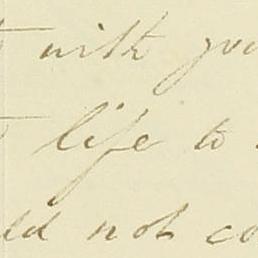 with you
life to
ld not co